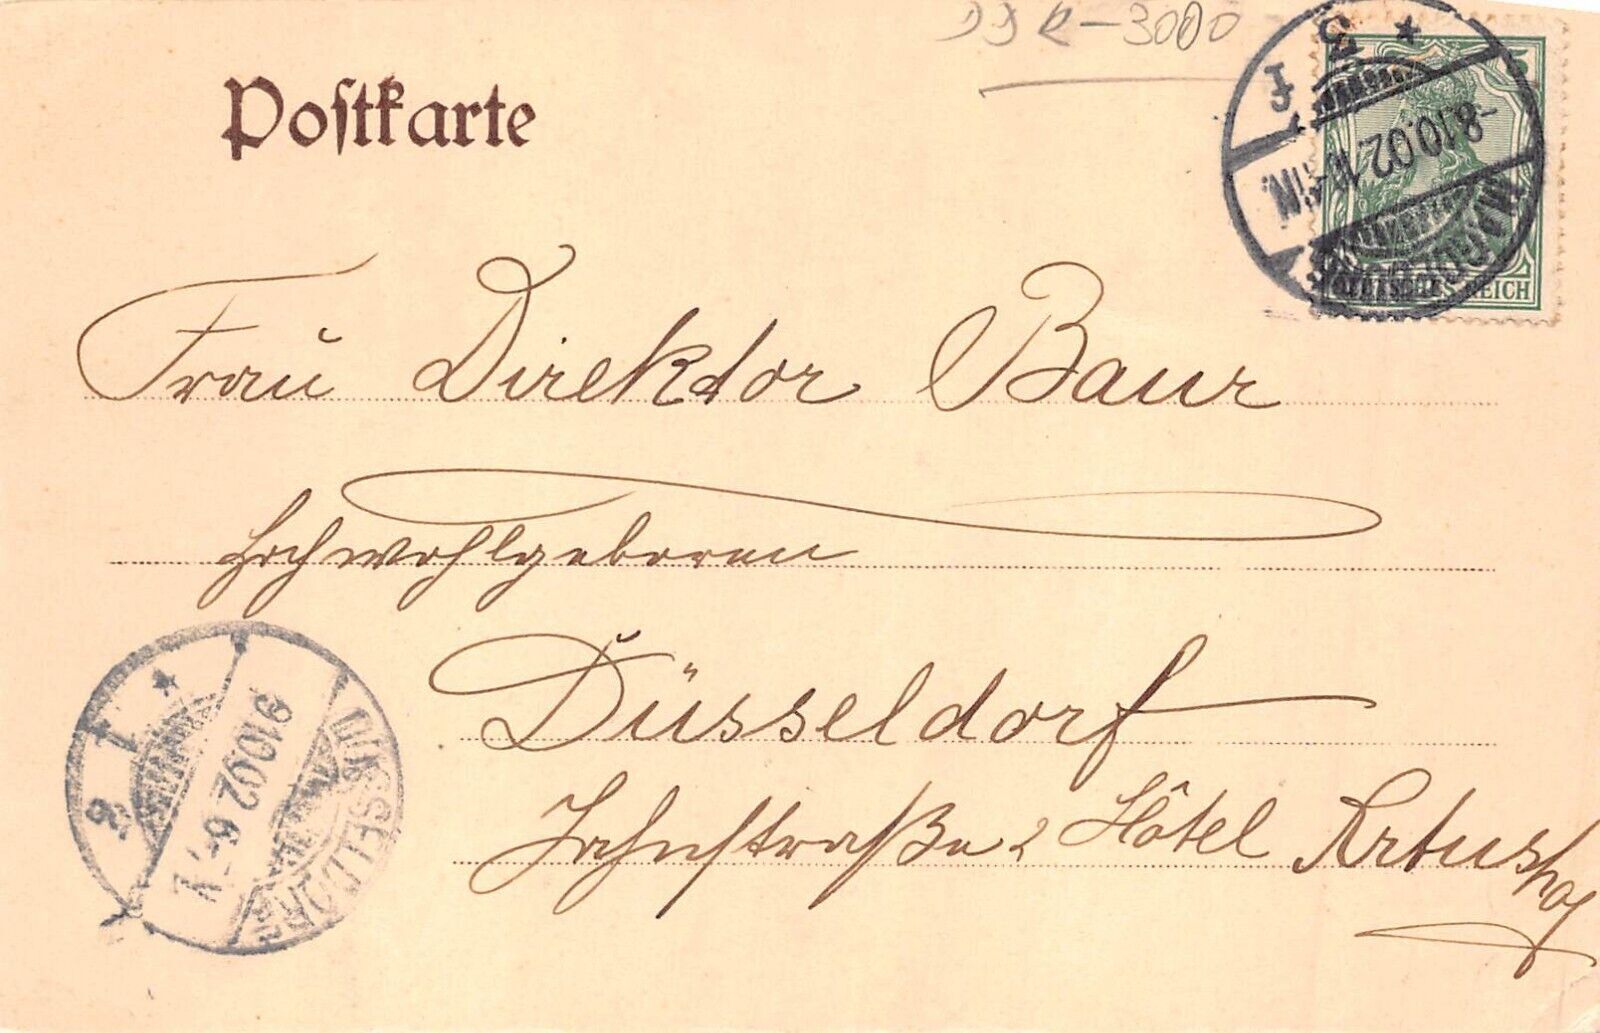 DDR-3000
Postkarte
5
MAGDEBURG
* 5 F
-8.10.02.11-12N.
DEUTSCHES REICH
Frau Direktor Baur
Hochwohlgeboren
Düsseldorf
Jahnstraße 2 Hôtel Artushof
DÜSSELDORF
9.10.02. 6-7V.
* 1